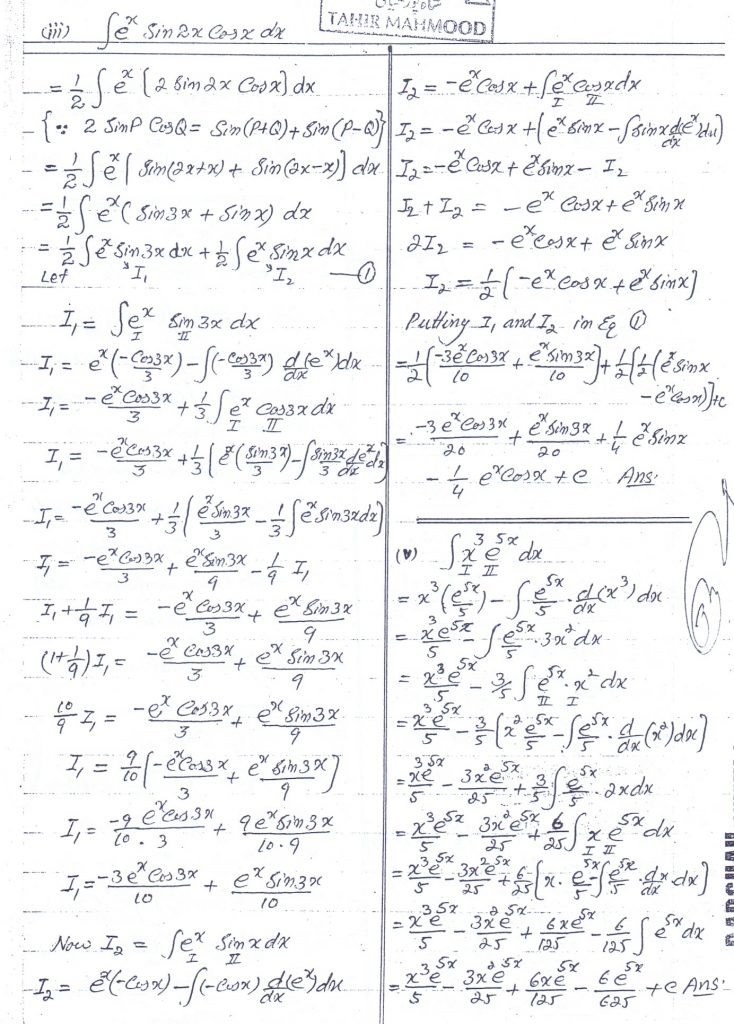 (iii) ∫e^x Sin2x Cosx dx
TAHIR MAHMOOD
= 1/2 ∫ e^x [2 Sin2x Cosx] dx
{∵ 2 SinP CosQ = Sin(P+Q) + Sin(P-Q)}
= 1/2 ∫ e^x [Sin(2x+x) + Sin(2x-x)] dx
= 1/2 ∫ e^x (Sin3x + Sinx) dx
= 1/2 ∫ e^x Sin3x dx + 1/2 ∫ e^x Sinx dx
Let I₁ I₂ — ①
I₁ = ∫ e^x Sin3x dx
I II
I₁ = e^x (-Cos3x/3) - ∫(-Cos3x/3) d/dx (e^x) dx
I₁ = -e^x Cos3x/3 + 1/3 ∫ e^x Cos3x dx
I II
I₁ = -e^x Cos3x/3 + 1/3 [e^x (Sin3x/3) - ∫ Sin3x/3 d/dx e^x dx]
I₁ = -e^x Cos3x/3 + 1/3 [e^x Sin3x/3 - 1/3 ∫ e^x Sin3x dx]
I₁ = -e^x Cos3x/3 + e^x Sin3x/9 - 1/9 I₁
I₁ + 1/9 I₁ = -e^x Cos3x/3 + e^x Sin3x/9
(1+1/9) I₁ = -e^x Cos3x/3 + e^x Sin3x/9
10/9 I₁ = -e^x Cos3x/3 + e^x Sin3x/9
I₁ = 9/10 [-e^x Cos3x/3 + e^x Sin3x/9]
I₁ = -9 e^x Cos3x/10·3 + 9 e^x Sin3x/10·9
I₁ = -3 e^x Cos3x/10 + e^x Sin3x/10
Now I₂ = ∫ e^x Sinx dx
I II
I₂ = e^x (-Cosx) - ∫(-Cosx) d/dx (e^x) dx
I₂ = -e^x Cosx + ∫ e^x Cosx dx
I II
I₂ = -e^x Cosx + [e^x Sinx - ∫ Sinx d/dx (e^x) dx]
I₂ = -e^x Cosx + e^x Sinx - I₂
I₂ + I₂ = -e^x Cosx + e^x Sinx
2I₂ = -e^x Cosx + e^x Sinx
I₂ = 1/2 [-e^x Cosx + e^x Sinx]
Putting I₁ and I₂ in Eq ①
= 1/2 [-3e^x Cos3x/10 + e^x Sin3x/10] + 1/2 [1/2 (e^x Sinx
- e^x Cosx)] + c
= -3 e^x Cos3x/20 + e^x Sin3x/20 + 1/4 e^x Sinx
- 1/4 e^x Cosx + c Ans.
(v) ∫ x³ e^5x dx
I II
= x³ (e^5x/5) - ∫ e^5x/5 · d/dx (x³) dx
= x³ e^5x/5 - ∫ e^5x/5 · 3x² dx
= x³ e^5x/5 - 3/5 ∫ e^5x · x² dx
II I
= x³ e^5x/5 - 3/5 [x² e^5x/5 - ∫ e^5x/5 · d/dx (x²) dx]
= x³ e^5x/5 - 3x² e^5x/25 + 3/5 ∫ e^5x/5 · 2x dx
= x³ e^5x/5 - 3x² e^5x/25 + 6/25 ∫ x e^5x dx
I II
= x³ e^5x/5 - 3x² e^5x/25 + 6/25 [x · e^5x/5 - ∫ e^5x/5 · d/dx x dx]
= x³ e^5x/5 - 3x² e^5x/25 + 6x e^5x/125 - 6/125 ∫ e^5x dx
= x³ e^5x/5 - 3x² e^5x/25 + 6x e^5x/125 - 6 e^5x/625 + c Ans.